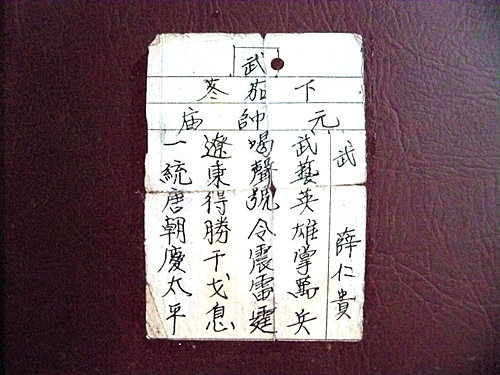 武
下茄苳
元帥庙
武 薛仁貴
武藝英雄掌萬兵
喝聲號令震雷霆
遼東得勝干戈息
一統唐朝慶太平